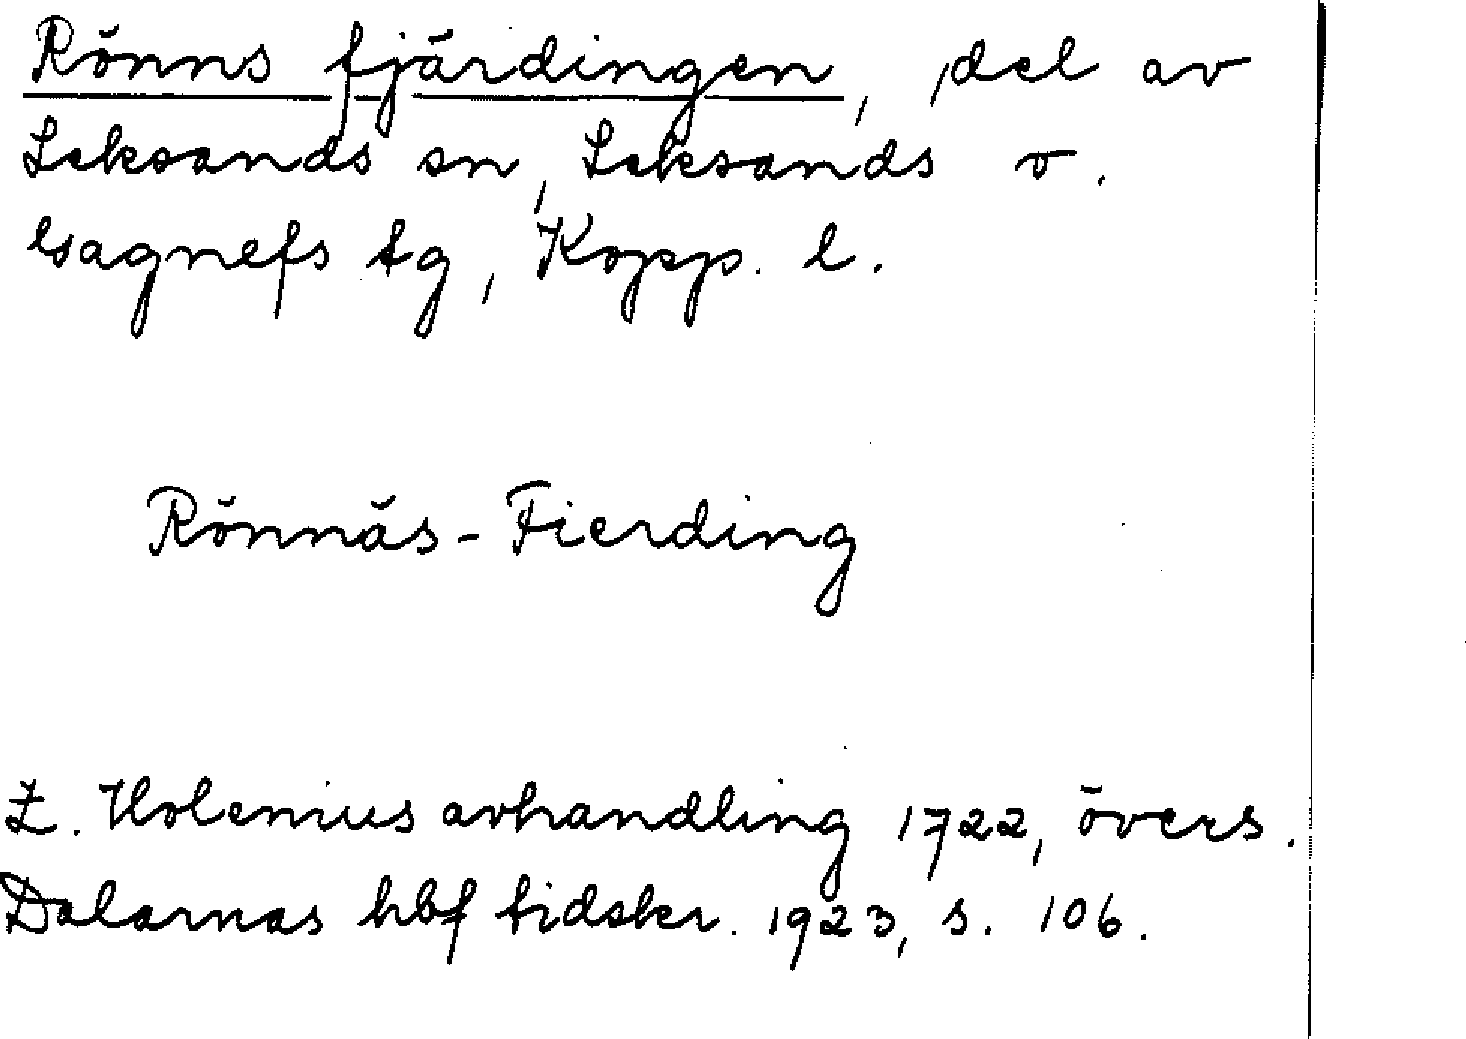 Rönns fjärdingen, del av
Leksands sn, Leksands o.
Gagnefs tg, Kopp. l.
Rönnäs-Fierding
Z. Holenius avhandling 1722, övers.
Dalarnas hbf tidskr. 1923, s. 106.